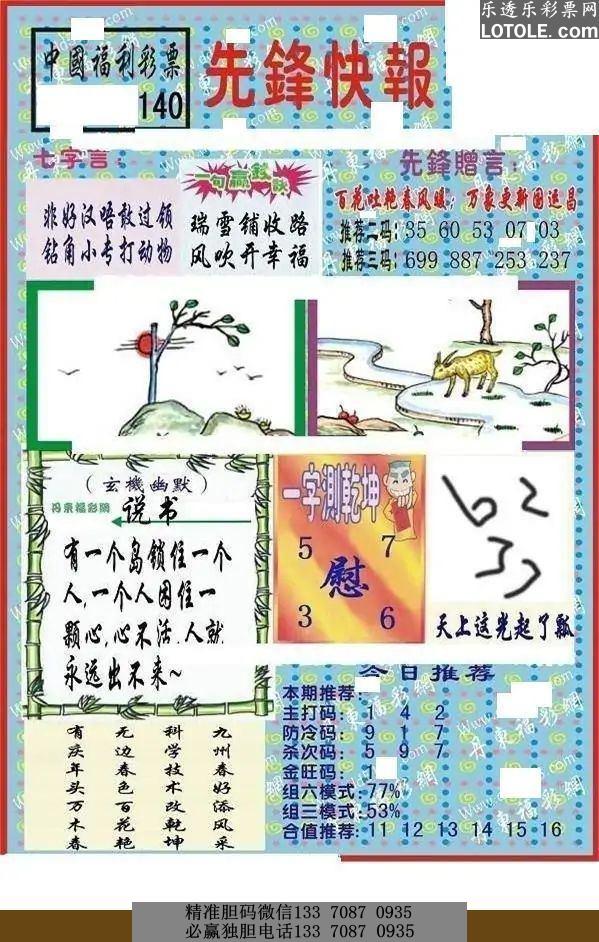 乐透乐彩票网
LOTOLE.COM
中國福利彩票
140
先鋒快報
七字言：
非好汉唔敢过领
钻角小专打动物
一句赢錢訣
瑞雪铺收路
风吹开幸福
先鋒贈言：
百花吐艳春风暖；万象更新国运昌
推荐二码：35 60 53 07 03
推荐三码：699 887 253 237
（玄機幽默）
丹東福彩網
说书
有一个岛锁住一个
人，一个人困住一
颗心，心不活，人就
永远出不来~
一字测乾坤
5 7
慰
3 6
天上这光起了瓢
今日推荐
本期推荐：
主打码： 1 4 2
防冷码： 9 1 7
杀次码： 5 9 7
金旺码： 1
组六模式：77%
组三模式：53%
合值推荐：11 12 13 14 15 16
九州春好添风采
科学技术改乾坤
无边春色百花艳
有庆年头万木春
精准胆码微信133 7087 0935
必赢独胆电话133 7087 0935